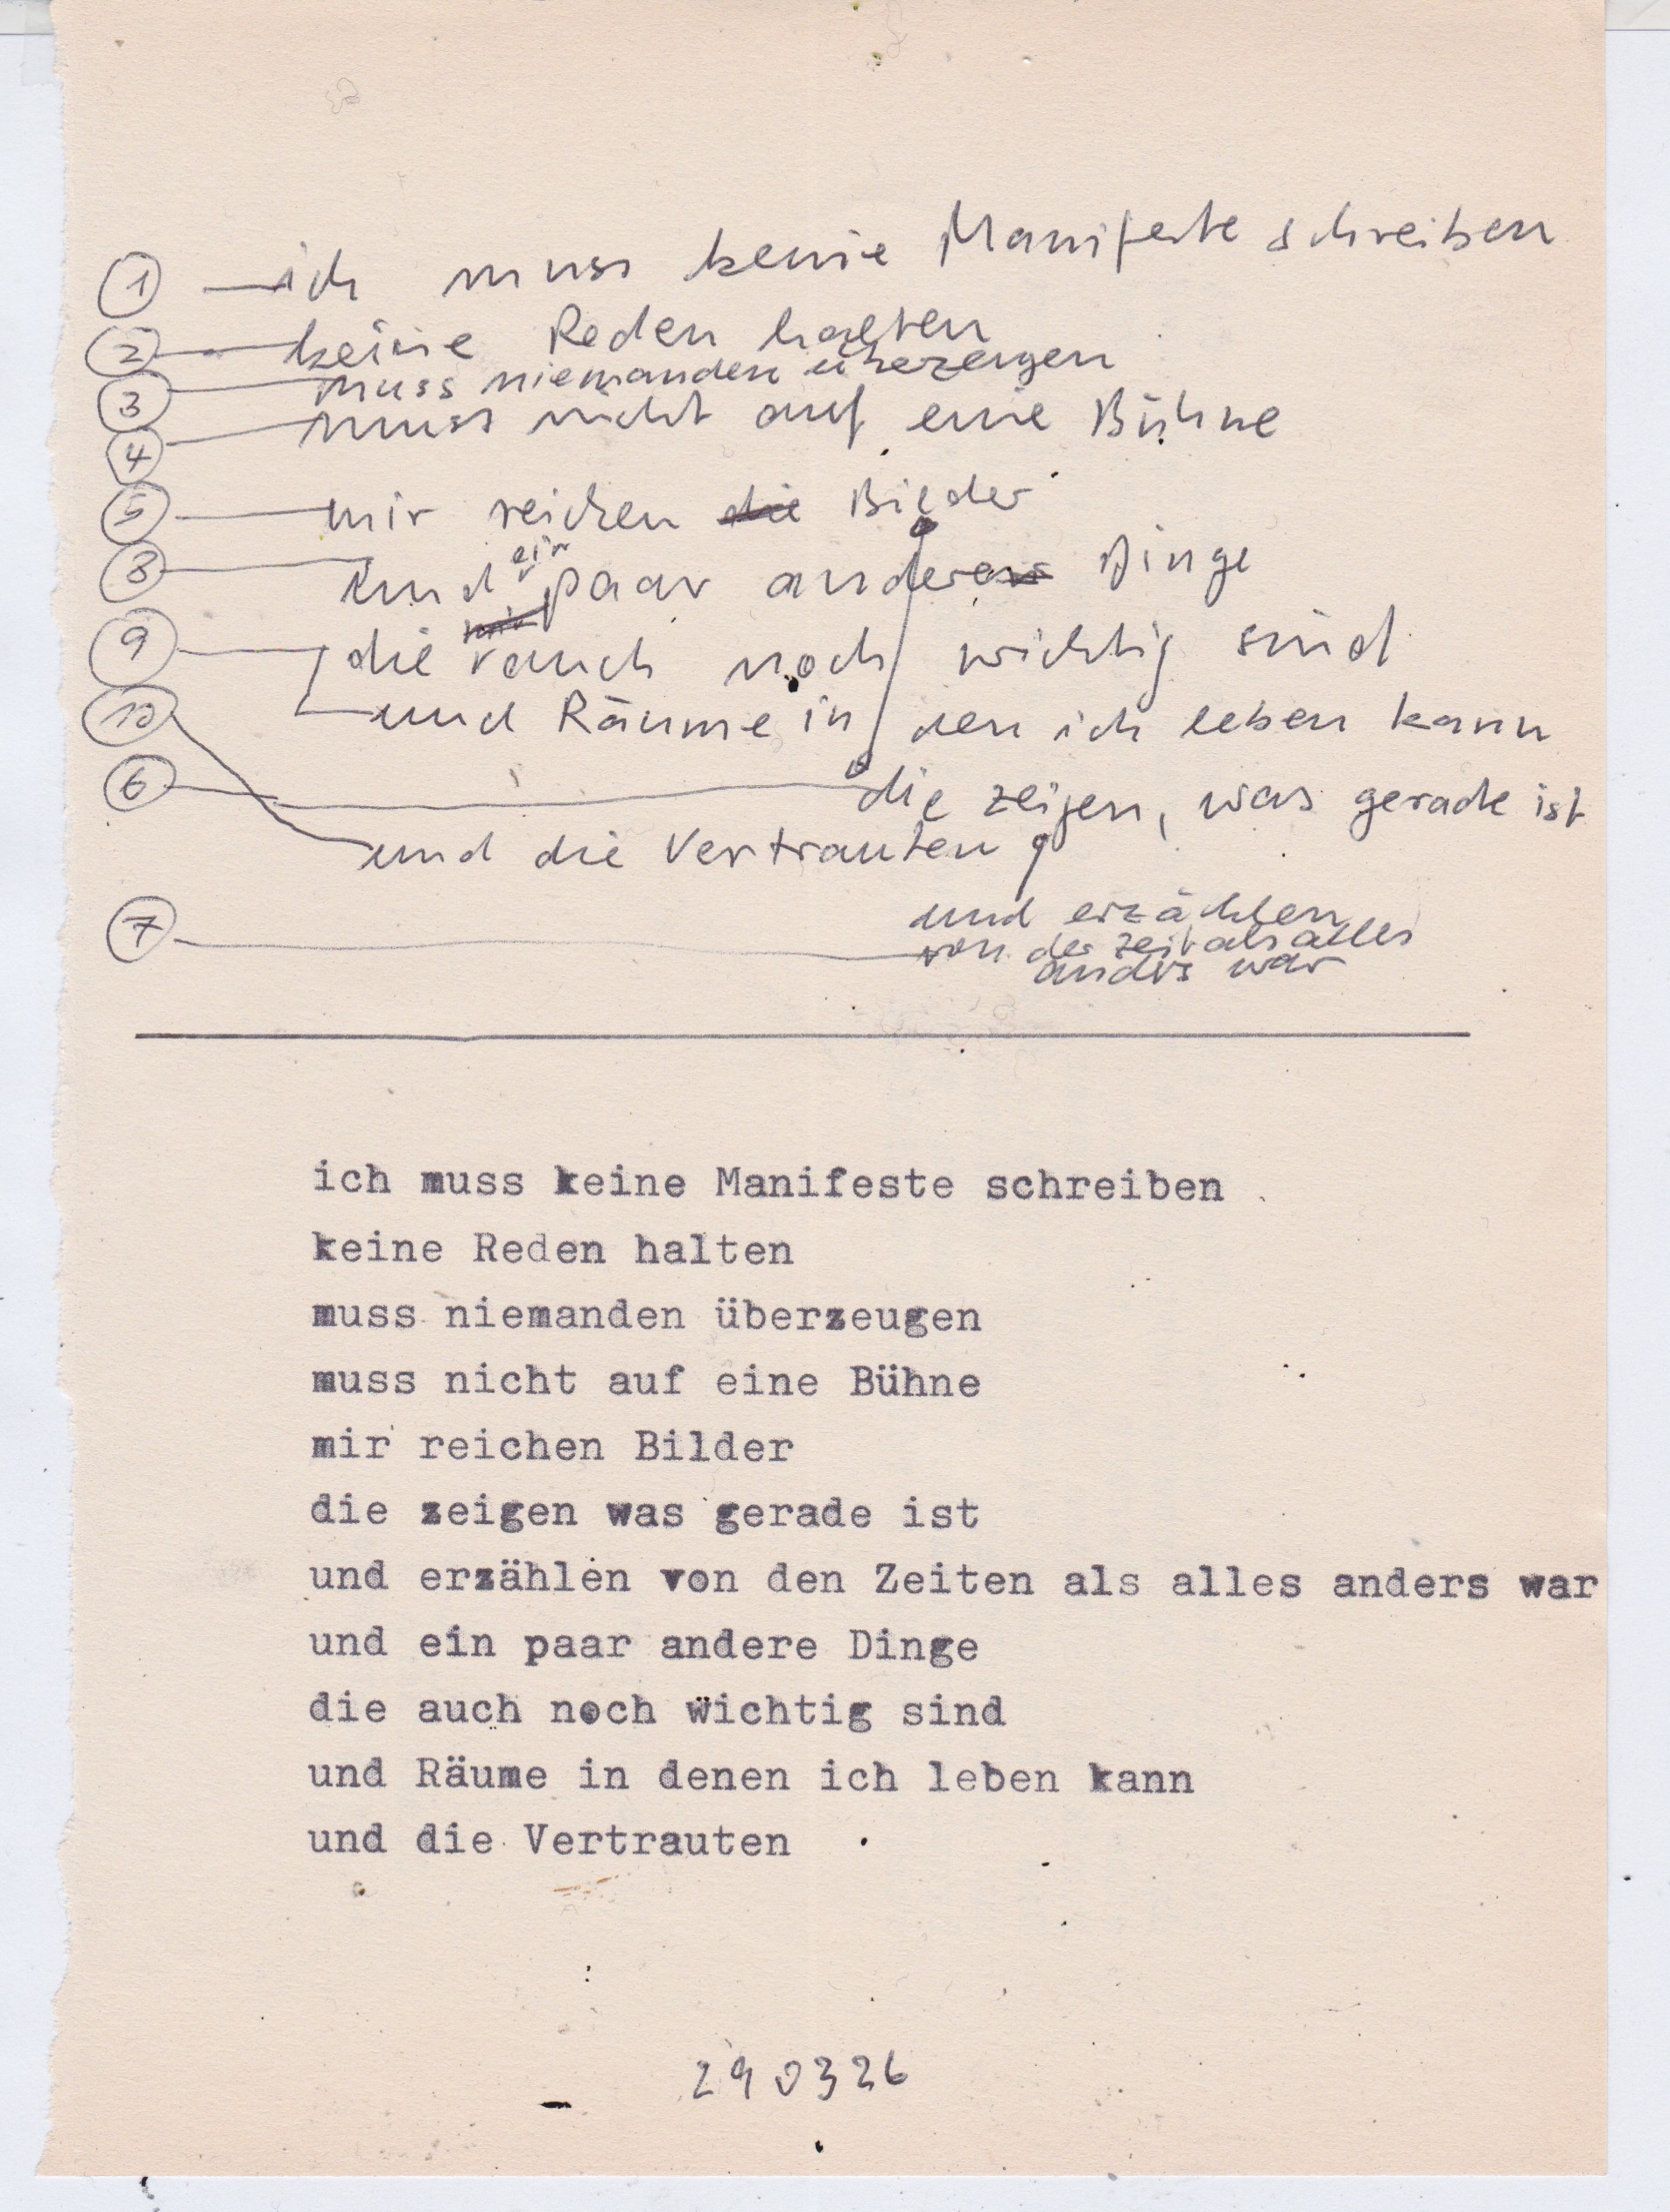 ① ich muss keine Manifeste schreiben
② keine Reden halten
③ muss niemanden überzeugen
④ muss nicht auf eine Bühne
⑤ mir reichen die Bilder
⑧ und ein paar anderen Dinge
⑨ die auch noch wichtig sind
und Räume in den ich leben kann
⑥ die zeigen, was gerade ist
⑩ und die Vertrauten
und erzählen
⑦ von der Zeit als alles
anders war
ich muss keine Manifeste schreiben
keine Reden halten
muss niemanden überzeugen
muss nicht auf eine Bühne
mir reichen Bilder
die zeigen was gerade ist
und erzählen von den Zeiten als alles anders war
und ein paar andere Dinge
die auch noch wichtig sind
und Räume in denen ich leben kann
und die Vertrauten
290326